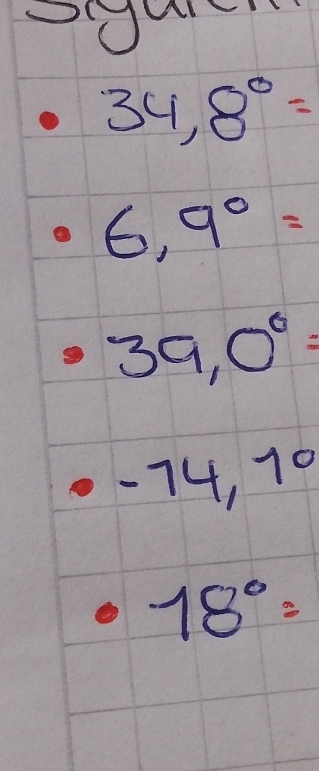 • 34,8° =
• 6,9° =
• 39,0° =
• -14,1°
• 18° =